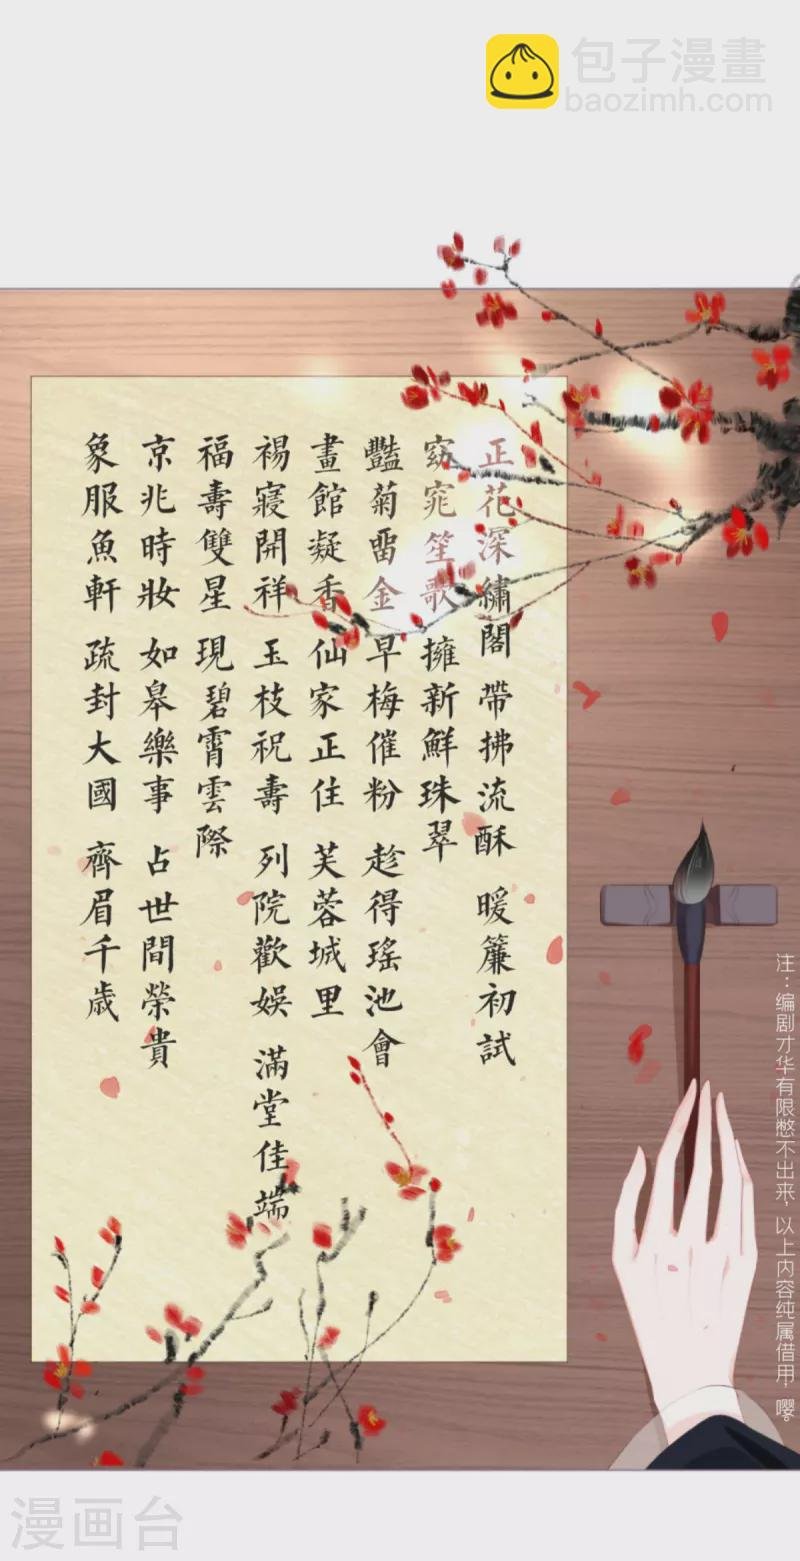 包子漫畫
baozimh.com
正花深繡閣 帶拂流酥 暖簾初試
窈窕笙歌 擁新鮮珠翠
豔菊畱金 早梅催粉 趁得瑤池會
畫館凝香 仙家正住 芙蓉城里
禓寢開祥 玉枝祝壽 列院歡娛 滿堂佳端
福壽雙星 現碧霄雲際
京兆時妝 如皋樂事 占世間榮貴
象服魚軒 疏封大國 齊眉千歲
注：编剧才华有限憋不出来，以上内容纯属借用，嘤。
漫画台